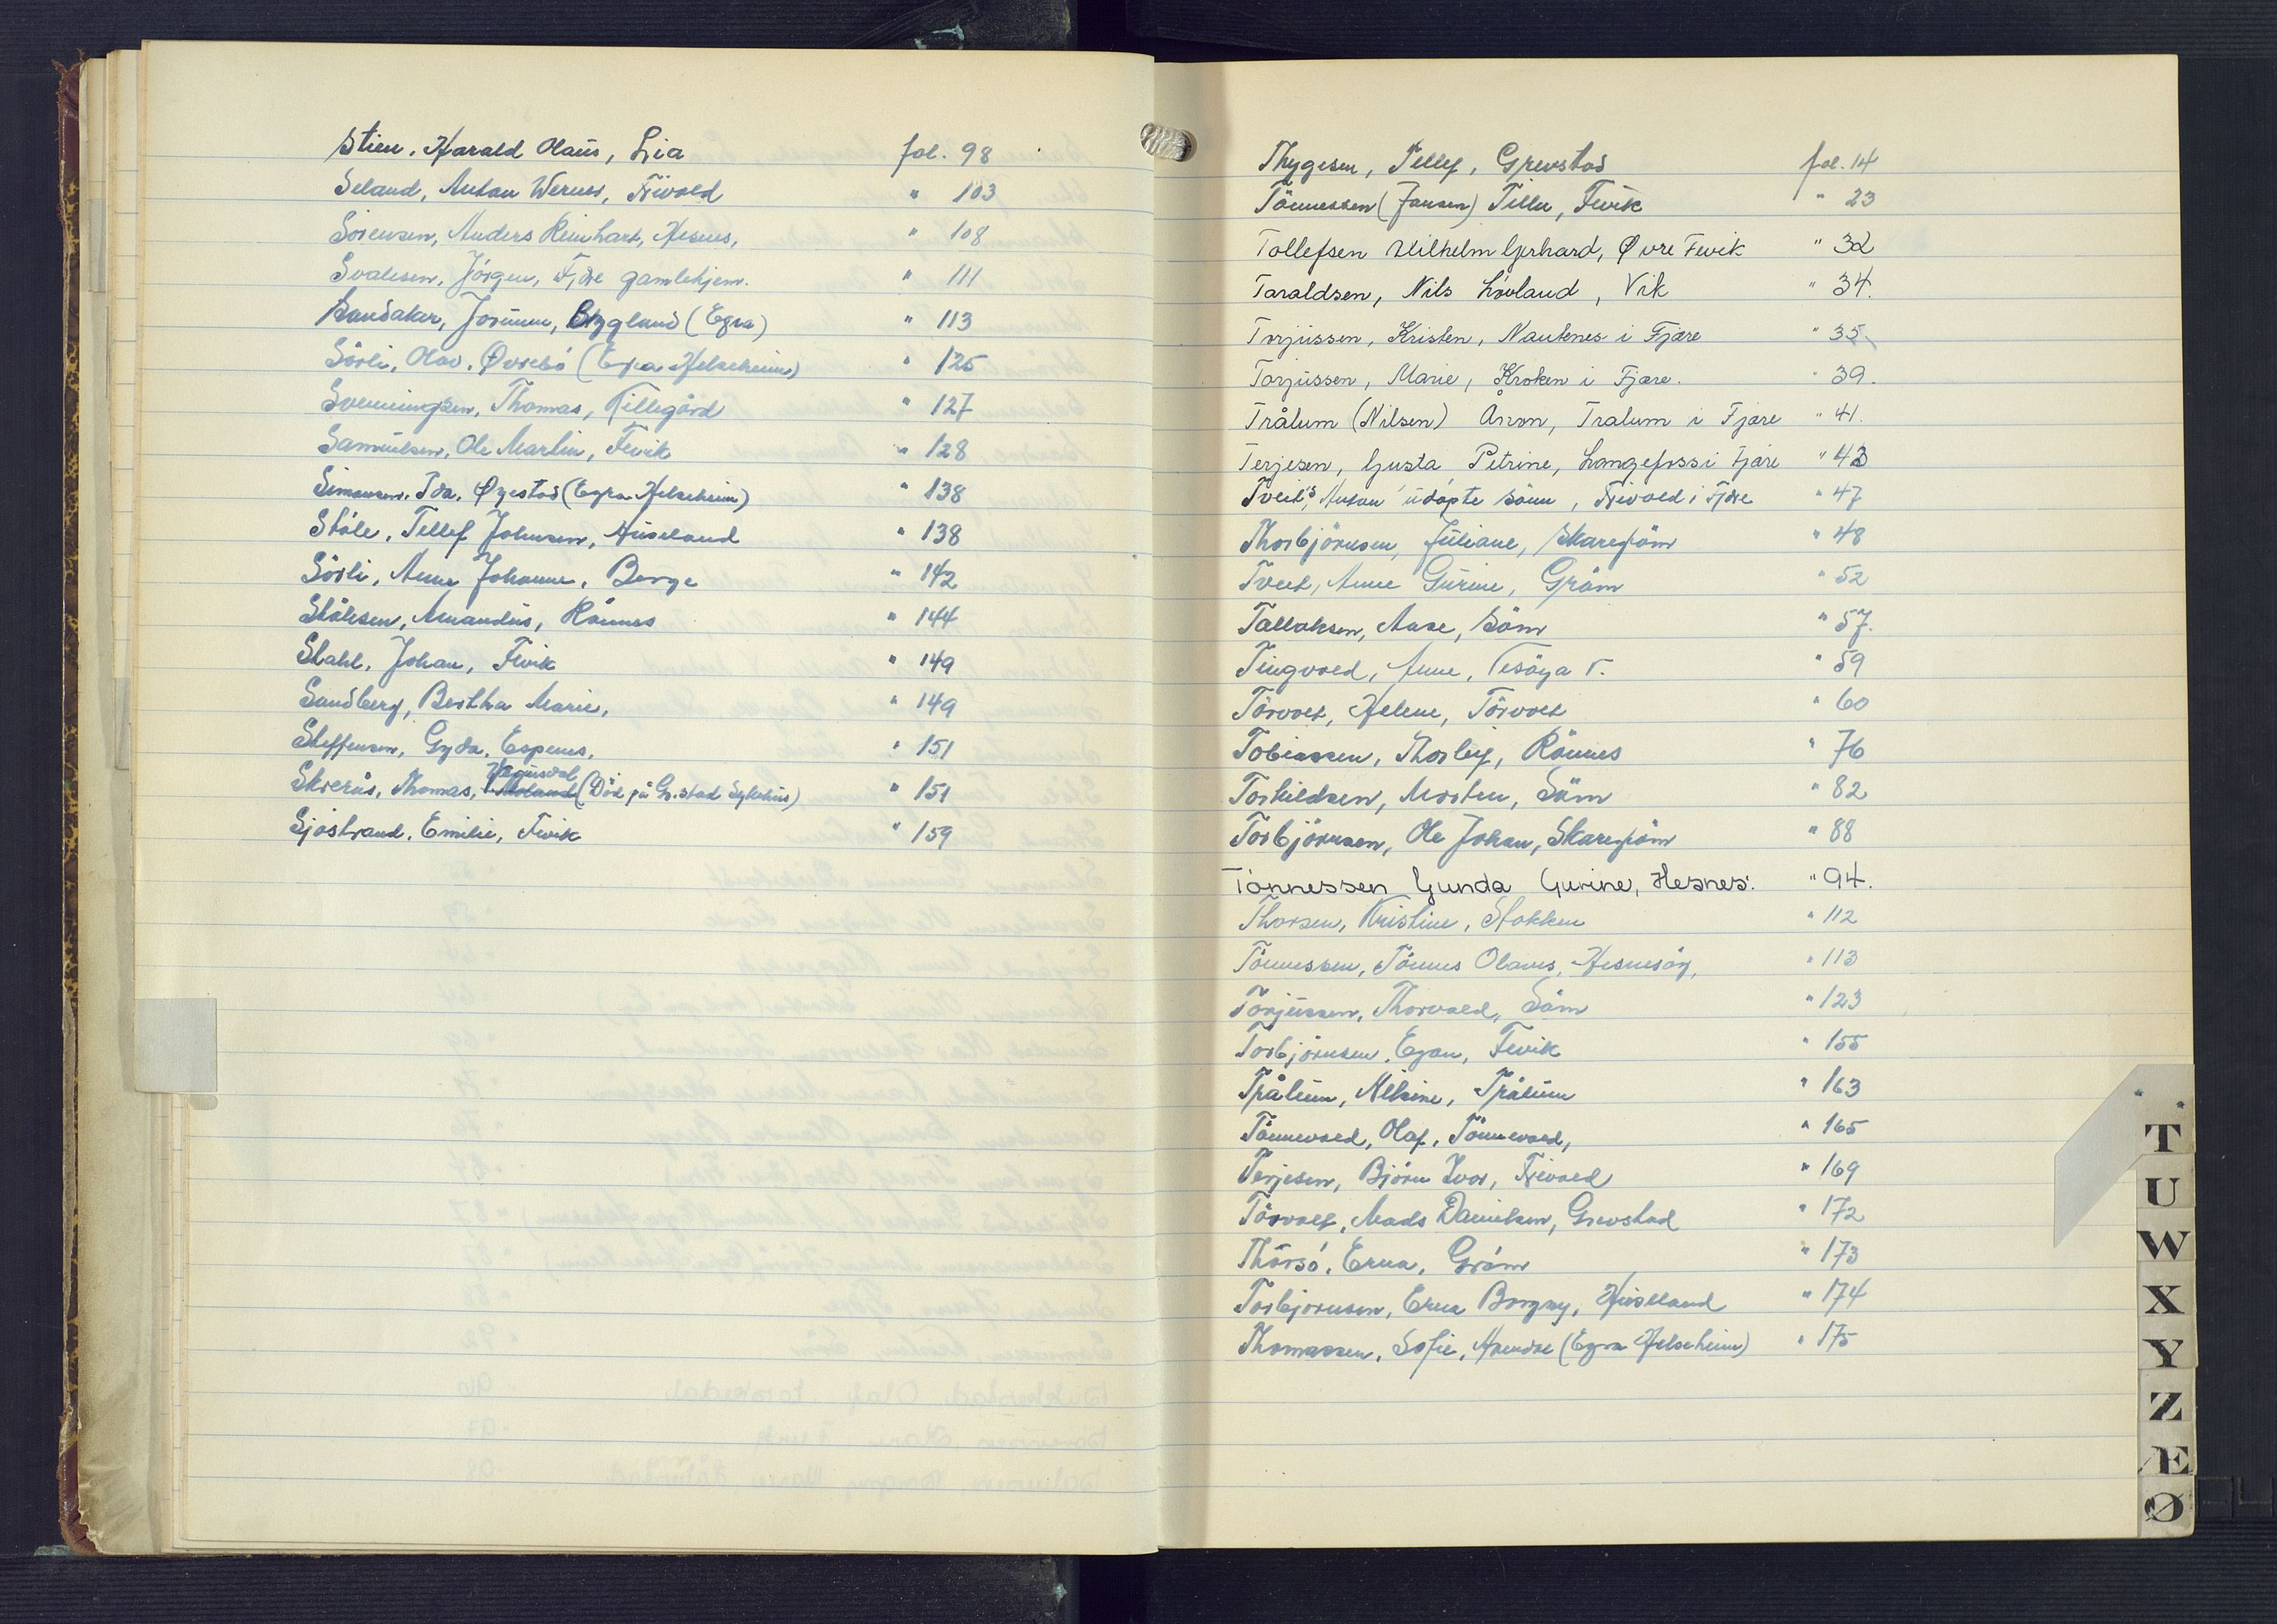 Stien, Harald Olaus, Lia fol. 98
Seland, Anton Werner, Frivold " 103
Sörensen, Anders Reinhart, Hesnes, " 108
Svalesen, Jörgen, Fjære gamlehjem. " 111
Sandaker, Jorunn, Bygland (Egra) " 113
Sörli, Olav, Øvrebö (Egra Helseheim) " 125
Svenningsen, Thomas, Killegård " 127
Samuelsen, Ole Martin, Fevik " 128
Simonsen, Ida, Øyestad (Egra Helseheim) " 138
Ståle, Tellef Johnsen, Huseland " 138
Sörli, Anne Johanne, Berge " 142
Stålesen, Amandus, Rönnes " 144
Stahl, Johan, Fevik " 149
Sandberg, Bertha Marie, " 149
Steffensen, Gyda, Espenes, " 151
Skrerås, Thomas, (Död på Gr.stad Sykehus) " 151
Sjöstrand, Emilie, Fevik " 159
Thygesen, Tellef, Grevstad fol. 14
Tönnessen (Jansen) Tilla, Fevik " 23
Tollefsen Vilhelm Gerhard, Øvre Fevik " 32
Taraldsen, Nils Lövland, Vik " 34.
Torjussen, Kristen, Nautenes i Fjære " 35.
Torjussen, Marie, Kroken i Fjære. " 39.
Trålum (Nilsen) Åron, Trålum i Fjære " 41.
Terjesen, Gusta Petrine, Langefoss i Fjære " 43
Tveit's, Anton udöpte sönn, Frivold i Fjære " 47
Thorbjörnsen, Juliane, Skaregröm " 48
Tveit, Anne Gurine, Gröm " 52
Tallaksen, Aase, Söm " 57.
Tingvold, Anne, Vesöya V. " 59
Törvolt, Helene, Törvolt " 60
Tobiassen, Thorleif, Rönnes " 76
Torkildsen, Morten, Söm " 82
Torbjörnsen, Ole Johan, Skaregröm " 88
Tönnessen Gunda Gurine, Hesnes. " 94.
Thorsen, Kristine, Stokken " 112
Tönnessen, Tönnes Olaves, Hesnesöy, " 113
Torjussen, Thorvald, Söm " 123
Torbjörnsen, Egon, Fevik " 155
Trålum, Nilsine, Trålum " 163
Tönnevold, Olaf, Tönnevold, " 165
Terjesen, Björn Ivar, Frivold " 169
Törvolt, Mads Danielsen, Grevstad " 172
Thörsö, Erna, Gröm " 173
Torbjörnsen, Erna Borgny, Huseland " 174
Thomassen, Sofie, Arendal (Egra Helseheim) " 175
T
U
W
X
Y
Z
Æ
Ø